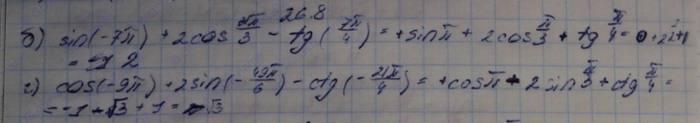 26.8
б) sin(-7π) + 2cos 7π/3 - tg(7π/4) = +sinπ + 2cos π/3 + tg π/4 = 0 +
= 2
г) cos(-9π) + 2sin(-49π/6) - ctg(-21π/4) = +cosπ - 2sin π/3 + ctg π/4 =
= -1 - √3 + 1 = √3